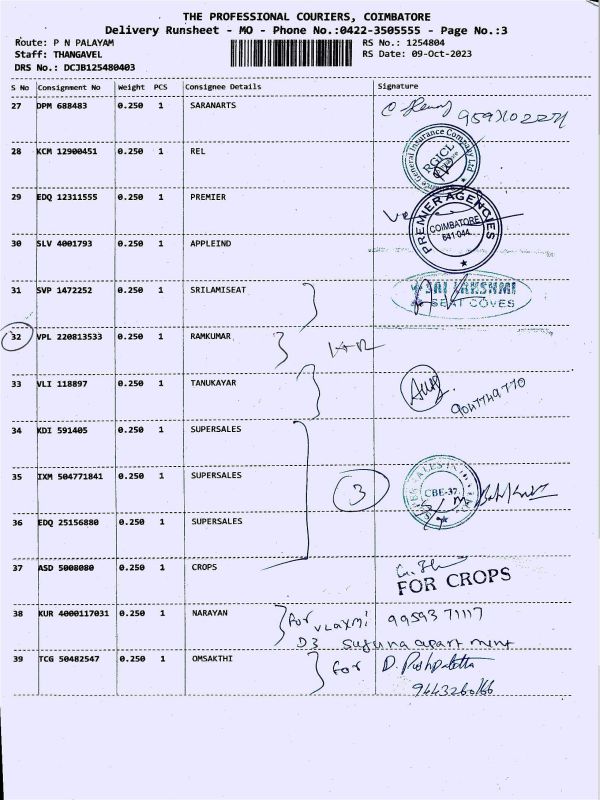 THE PROFESSIONAL COURIERS, COIMBATORE
Delivery Runsheet - MO - Phone No.:0422-3505555 - Page No.:3
Route: P N PALAYAM RS No.: 1254804
Staff: THANGAVEL RS Date: 09-Oct-2023
DRS No.: DCJB125480403
S No Consignment No Weight PCS Consignee Details Signature
27 DPM 688483 0.250 1 SARANARTS
28 KCM 12900451 0.250 1 REL
General Insurance Company Ltd
RGICL
29 EDQ 12311555 0.250 1 PREMIER
PREMIER AGENCIES
COIMBATORE
641 044
30 SLV 4001793 0.250 1 APPLEIND
31 SVP 1472252 0.250 1 SRILAMISEAT
SRI LAKSHMI
SEAT COVES
32 VPL 220813533 0.250 1 RAMKUMAR
33 VLI 118897 0.250 1 TANUKAYAR
9047749770
34 KDI 591405 0.250 1 SUPERSALES
35 IXM 504771841 0.250 1 SUPERSALES
3
CBE-37
36 EDQ 25156880 0.250 1 SUPERSALES
37 ASD 5008080 0.250 1 CROPS
FOR CROPS
38 KUR 4000117031 0.250 1 NARAYAN For VLaxmi 99593 71117
D3 suguna apartment
39 TCG 50482547 0.250 1 OMSAKTHI for D. Pushpalatha
9443260166